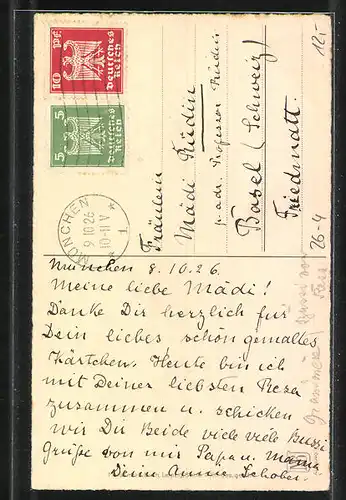 10 PF.
Deutsches
Reich
5 5
Deutsches
Reich
MÜNCHEN
9.10.26
10-11 V
* 1 *
12,-
Fräulein
Mädi Rüdin
p. adr. Professor Rüdin
Basel (Schweiz)
Friedmatt.
26-4
München 8.10.26.
Meine liebe Mädi!
Danke Dir herzlich für
Dein liebes schön gemaltes
Kärtchen. Heute bin ich
mit Deiner liebsten Resa
zusammen u. schicken
wir Dir Beide viele viele Bussi
Grüße von mir Papa u. Mama
Deine Schober.